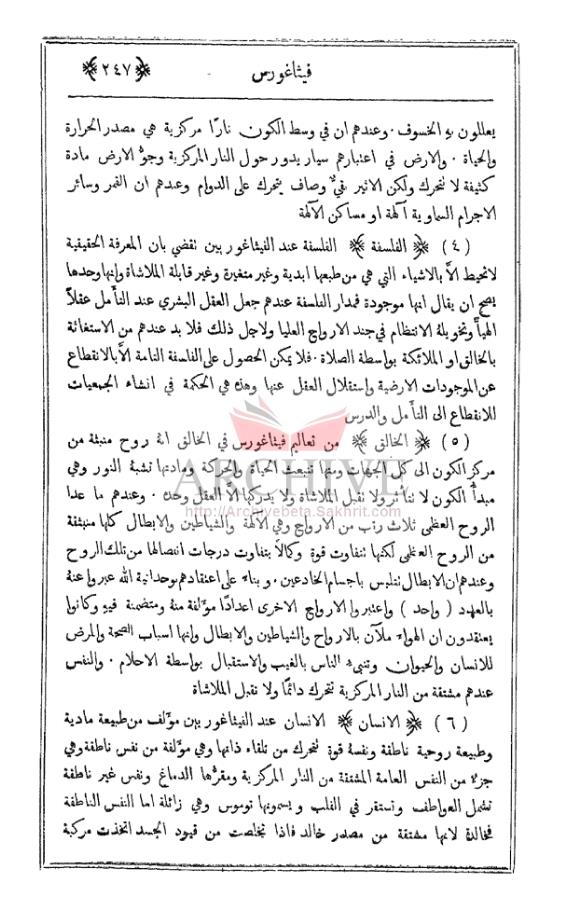 فيثاغورس ﴿ ٢٤٧ ﴾
يعللون به الخسوف . وعندهم ان في وسط الكون نارًا مركزية هي مصدر الحرارة
والحياة . والارض في اعتبارهم سيار يدور حول النار المركزية وجوُّ الارض مادة
كثيفة لا تتحرك ولكن الاثير نقيٌّ وصاف يتحرك على الدوام وعندهم ان القمر وسائر
الاجرام السماوية آلهة او مساكن الآلهة
( ٤ ) ﴿ الفلسفة ﴾ الفلسفة عند الفيثاغور بين تقضي بان المعرفة الحقيقية
لاتحيط الاَّ بالاشياء التي هي من طبعها ابدية وغير متغيرة وغير قابلة الملاشاة وانها وحدها
يصح ان يقال انها موجودة فمدار الفلسفة عندهم جعل العقل البشري عند التأمل عقلاً
الهيًّا وتخويلهُ الانتظام في جند الارواح العليا ولاجل ذلك فلا بد عندهم من الاستغاثة
بالخالق او الملائكة بواسطة الصلاة . فلا يمكن الحصول على الفلسفة التامة الاَّ بالانقطاع
عن الموجودات الارضية واستقلال العقل عنها وهذه هي الحكمة في انشاء الجمعيات
للانقطاع الى التأمل والدرس
( ٥ ) ﴿ الخالق ﴾ من تعاليم فيثاغورس في الخالق انهُ روح منبثة من
مركز الكون الى كل الجهات ومنها تنبعث الحياة والحركة ومادتها تشبه النور وهي
مبدأ الكون لا تتأثر ولا تقبل الملاشاة ولا يدركها الاَّ العقل وحده . وعندهم ما عدا
الروح العظمى ثلاث رتب من الارواح وهي الآلهة والشياطين والابطال كلها منبثقة
من الروح العظمى لكنها تتفاوت قوة وكمالاً بتفاوت درجات انفصالها من تلك الروح
وعندهم ان الابطال تتلبس باجسام الخادعين . وبناء على اعتقادهم بوحدانية الله عبروا عنهُ
بالعدد ( واحد ) واعتبروا الارواح الاخرى اعدادًا مؤلفة منهُ ومتضمنة فيهِ وكانوا
يعتقدون ان الهواء ملآن بالارواح والشياطين والابطال وانها اسباب الصحة والمرض
للانسان والحيوان وتنبىء الناس بالغيب والاستقبال بواسطة الاحلام . والنفس
عندهم مشتقة من النار المركزية تتحرك دائمًا ولا تقبل الملاشاة
( ٦ ) ﴿ الانسان ﴾ الانسان عند الفيثاغور بين مؤلف من طبيعة مادية
وطبيعة روحية ناطقة ونفسهُ قوة تتحرك من تلقاء ذاتها وهي مؤلفة من نفس ناطقة وهي
جزء من النفس العامة المشتقة من النار المركزية ومقرُّها الدماغ ونفس غير ناطقة
تشمل العواطف وتستقر في القلب ويسمونها توموس وهي زائلة اما النفس الناطقة
فخالدة لانها مشتقة من مصدر خالد فاذا تخلصت من قيود الجسد اتخذت مركبة
ARCHIVE
http://Archivebeta.Sakhrit.com